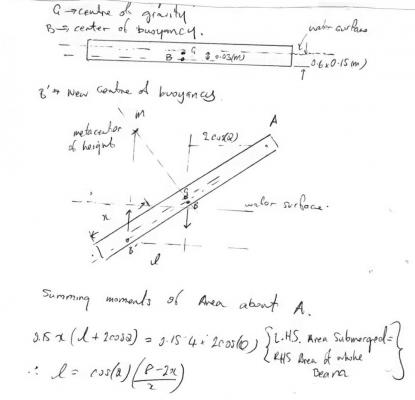 G → centre of gravity
B → center of buoyancy.
water surface
G
B
0.03(m)
0.6 x 0.15(m)
B' → New centre of buoyancy
m
metacenter of height
2cos(Q)
A
G
B
x
water surface.
B'
l
Summing moments of Area about A.
0.15 x (l + 2cosQ) = 0.15 · 4 · 2cos(Q) { L.H.S. Area Submerged =
RHS Area of whole
beam }
∴ l = cos(Q) (8-2x / x)